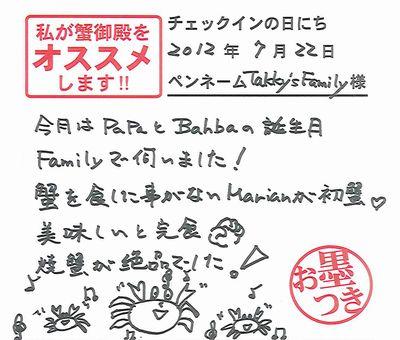 私が蟹御殿を
オススメ
します!!
チェックインの日にち
2012年 7月22日
ペンネーム Takky's Family 様
今月は PaPaと Bahbaの 誕生月
Familyで伺いました!
蟹を食しに事がない Marianが 初蟹♡
美味しいと完食
焼蟹が絶品でした!
お墨
つき